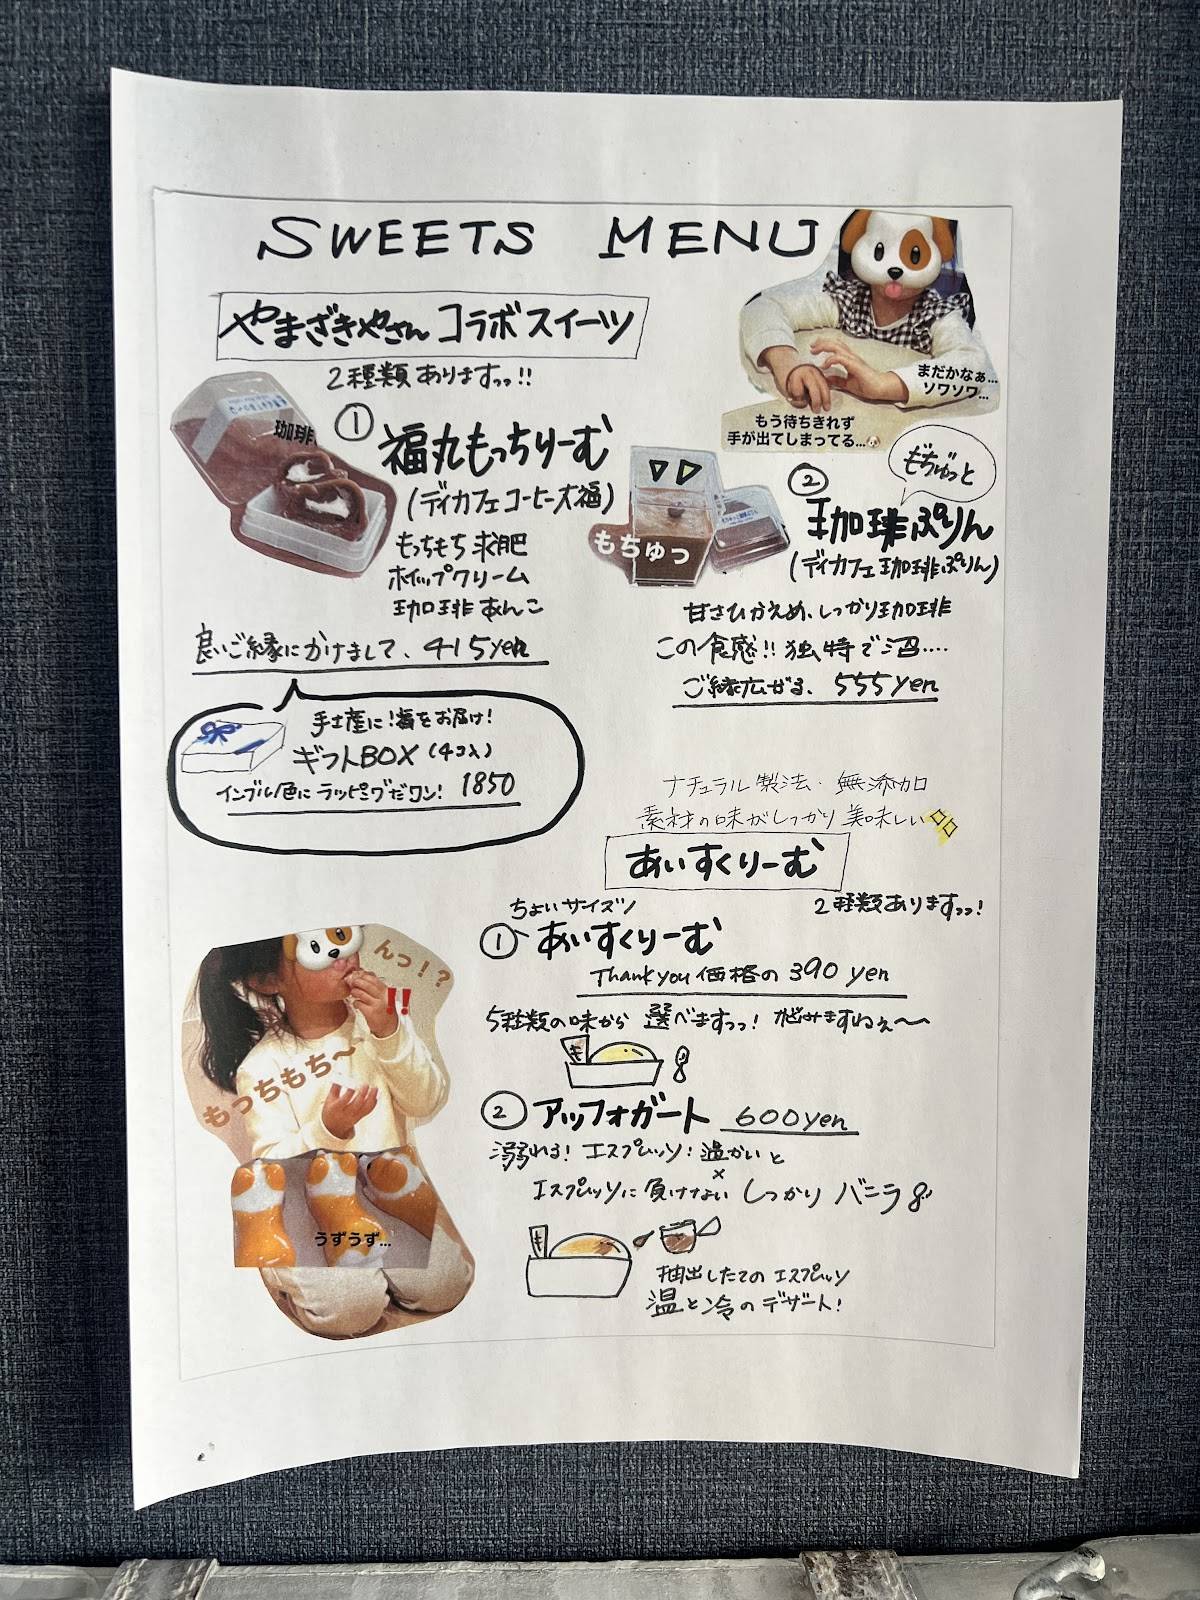 SWEETS MENU
やまざきやさん コラボスイーツ
2種類ありますっっ!!
まだかなぁ...
ソワソワ...
もう待ちきれず
手が出てしまってる...
珈琲
① 福丸もっちりーむ
(ディカフェ コーヒー大福)
もっちもち 求肥
ホイップクリーム
珈琲あんこ
良いご縁にかけまして、415yen
手土産に!福をお届け!
ギフトBOX (4コ入)
インブル色にラッピングだワン! 1850
もちゅっ
もちゅっと
② 珈琲ぷりん
(ディカフェ珈琲ぷりん)
甘さひかえめ、しっかり珈琲
この食感!! 独特で沼....
ご縁広がる、555yen
ナチュラル製法・無添加
素材の味がしっかり美味しい
あいすくりーむ
2種類ありますっっ!
ちょいサイズ
① あいすくりーむ
Thank you 価格の 390 yen
5種類の味から 選べますっっ! 悩みますねぇ〜〜
② アッフォガート 600yen
溺れる! エスプレッソ! 温かいと
×
エスプレッソに負けない しっかり バニラ
抽出したての エスプレッソ
温と冷のデザート!
んっ!?
!!
もっちもち〜
うずうず...